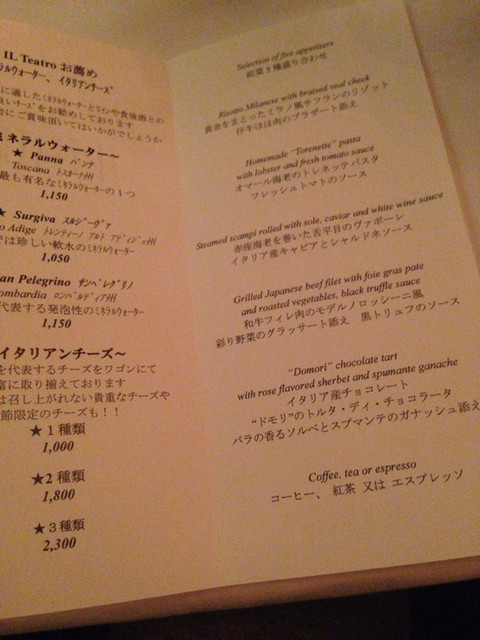 IL Teatro お薦め
ラルウォーター、イタリアンチーズ
に適したミネラルウォーターとワインや食後酒との
良いチーズをお勧めしております
にご賞味頂いてはいかがでしょうか
ミネラルウォーター～
★ Panna パンナ
Toscana トスカーナ州
最も有名なミネラルウォーターの１つ
1,150
★ Surgiva スルジーヴァ
o Adige トレンティーノ アルト アディジェ州
では珍しい軟水のミネラルウォーター
1,050
an Pelegrino サンペレグリノ
ombardia ロンバルディア州
代表する発泡性のミネラルウォーター
1,150
イタリアンチーズ～
を代表するチーズをワゴンにて
富に取り揃えております
は召し上がれない貴重なチーズや
節限定のチーズも！！
★１種類
1,000
★2 種類
1,800
★３種類
2,300
Selection of five appetizers
前菜 5 種盛り合わせ
Risotto Milanese with braised veal cheek
黄金をまとったミラノ風サフランのリゾット
仔牛ほほ肉のブラザート添え
Homemade "Torenette" pasta
with lobster and fresh tomato sauce
オマール海老のトレネッテパスタ
フレッシュトマトのソース
Steamed scampi rolled with sole, caviar and white wine sauce
赤座海老を巻いた舌平目のヴァポーレ
イタリア産キャビアとシャルドネソース
Grilled Japanese beef filet with foie gras pate
and roasted vegetables, black truffle sauce
和牛フィレ肉のモデルノロッシーニ風
彩り野菜のグラッサート添え 黒トリュフのソース
"Domori" chocolate tart
with rose flavored sherbet and spumante ganache
イタリア産チョコレート
"ドモリ"のトルタ・ディ・チョコラータ
バラの香るソルベとスプマンテのガナッシュ添え
Coffee, tea or espresso
コーヒー、 紅茶 又は エスプレッソ